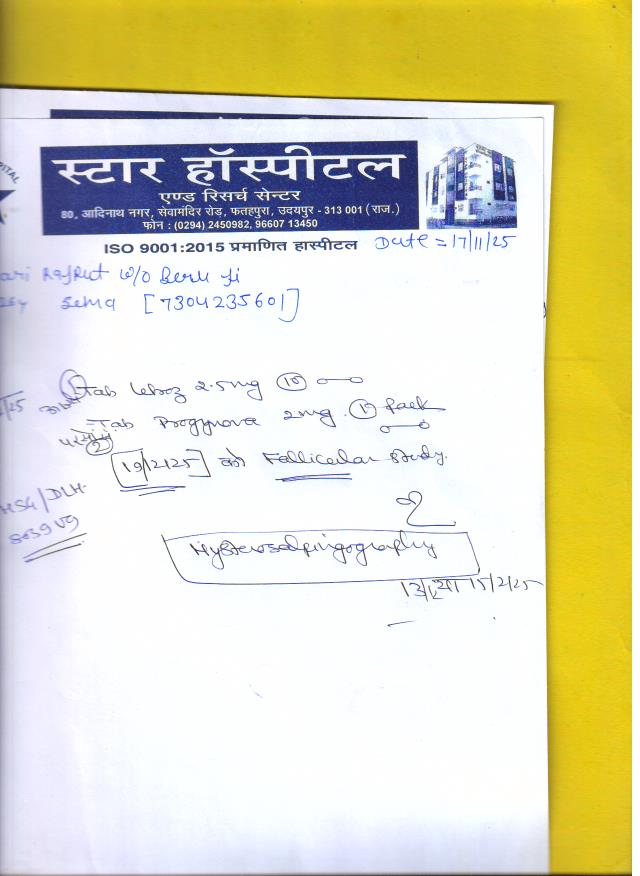 PITAL
स्टार हॉस्पीटल
एण्ड रिसर्च सेन्टर
80, आदिनाथ नगर, सेवामंदिर रोड़, फतहपुरा, उदयपुर - 313 001 (राज.)
फोन : (0294) 2450982, 96607 13450
ISO 9001:2015 प्रमाणित हास्पीटल Date = 17/11/25
ari Rajput w/o Beru ji
[7304235601]
Tab Leboz 2.5mg 10
Tab Progynova 2mg. 1 Pack
[19/2/25] को Follicular Study.
HSG/DLH-
Hysterosalpingography
15/2/25